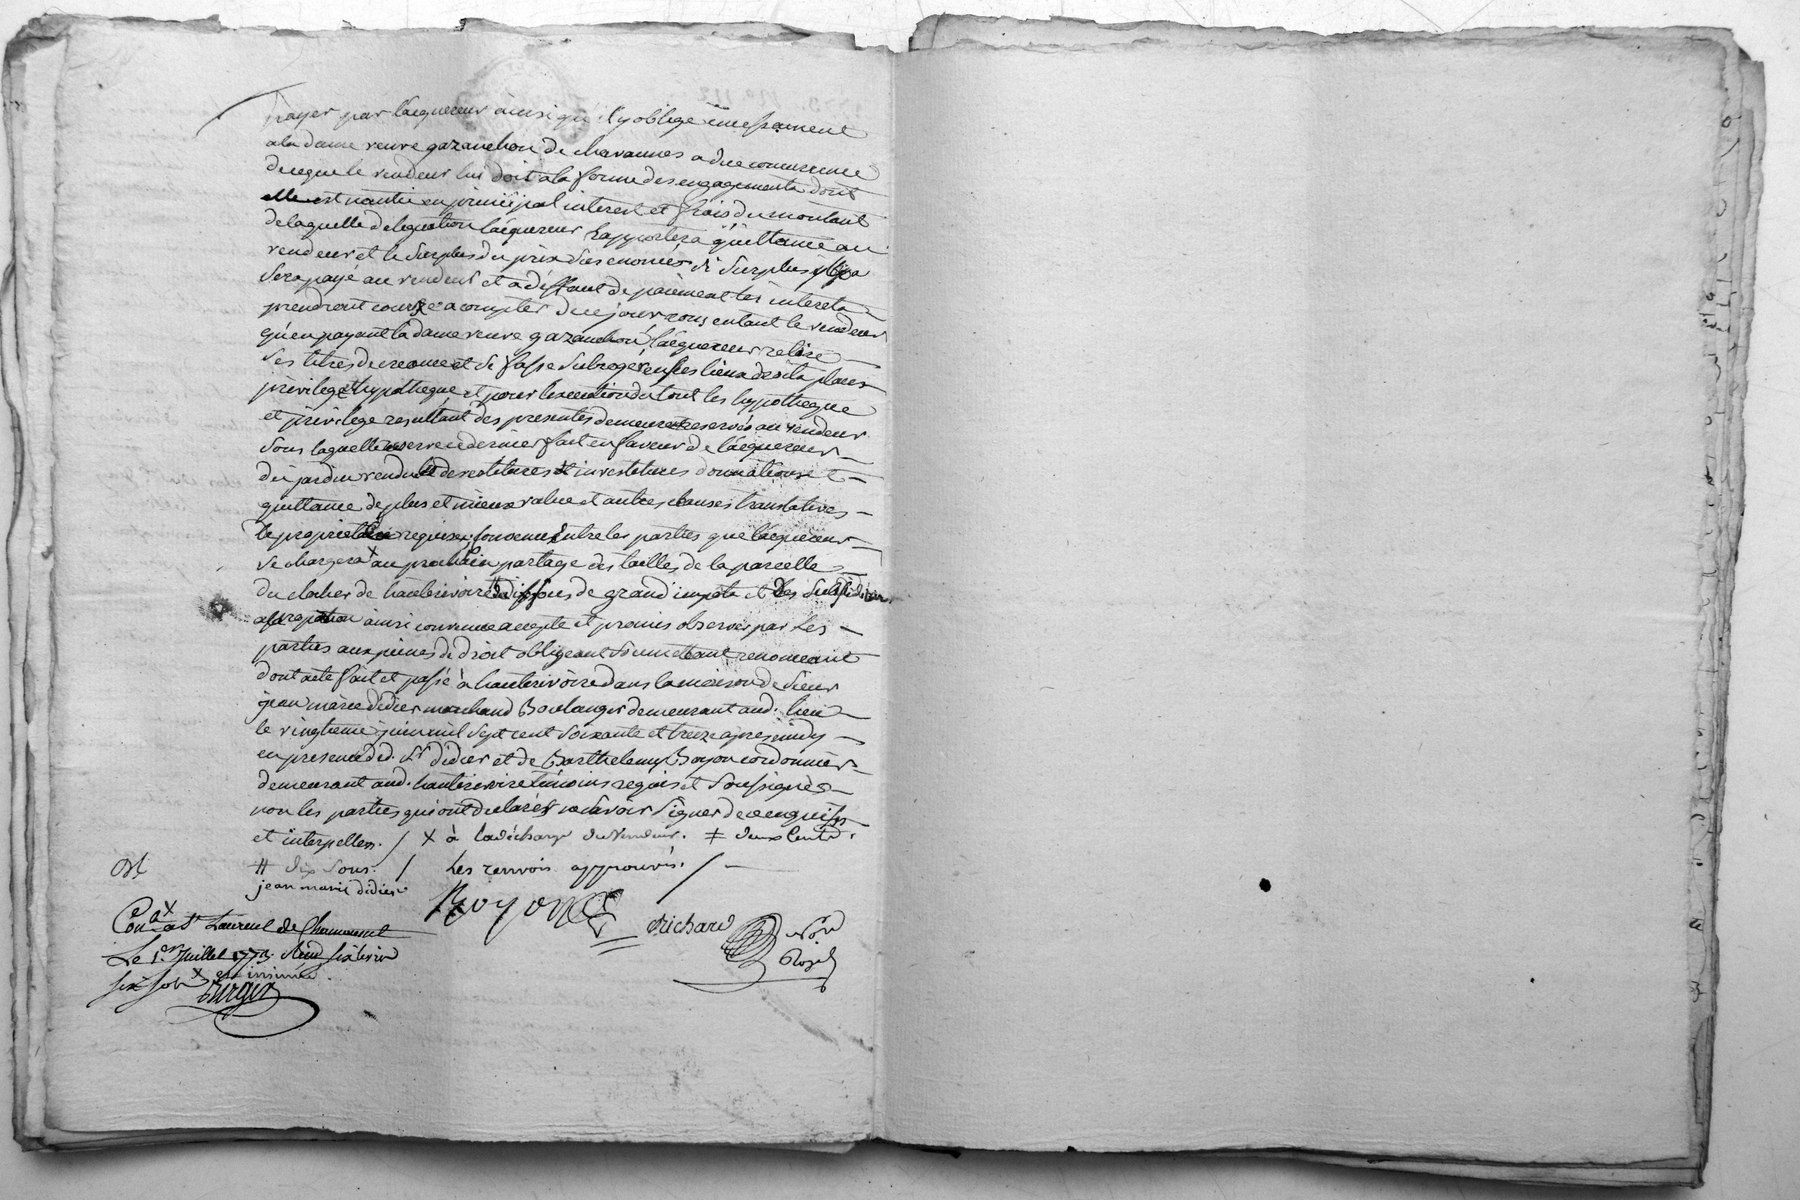 payer par lacquereur ainsi qu'il y oblige expressement
a la dame veuve gazanchon de chavannes a due concurrence
de ce que le vendeur lui doit a la forme des engagements dont
elle est nantie en principal interest et frais du montant
de laquelle delegation lacquereur rapportera quittance au
vendeur et le surplus du prix sus enoncé si surplus il y a
sera payé au vendeur et a deffaut de paiement les interets
prendront cours a compter de ce jour consentant le vendeur
qu'en payant la dame veuve gazanchon lacquereur retire
ses titres de creance et se fasse subroger en ses lieux droits place
privilege et hypotheque et pour lexecution du tout les hypotheque
et privilege resultant des presentes demeurent reservés au vendeur
sous laquelle reserve ce dernier fait en faveur de lacquereur
du jardin vendu de devestitures et investitures donnation et
quittance de plus et mieux value et autres clauses translatives
de proprieté requises, convenu entre les parties que lacquereur
se chargera x au prochain partage des tailles de la parcelle
du clocher de hauterivoire # dix sous de grand impots et des subsidiaires
a proportion ainsi convenu accepté et promis observer par les
parties aux peines de droit obligeant soumettant renonceant
dont acte fait et passé à hauterivoire dans la maison de sieur
jean marie didier marchand Boulanger demeurant aud. lieu
le vingtieme juin mil sept cent soixante et treze apres midy
en presence dud. Sr didier et de Barthelemy Boyon cordonnier
demeurant aud. hauterivoire temoins requis et soussignés
non les parties qui ont declaré ne savoir signer de ce enquises
et interpellés. / x à la décharge du vendeur. ‡ deux cents
# dix sous. / Les renvois approuvés. /
jean marie didier
Boyon
Richard
Con.lé a St Laurent de Chamousset
Le 1.er Juillet 1773. Reçu six livres
six sols x et insinué.
Burgin